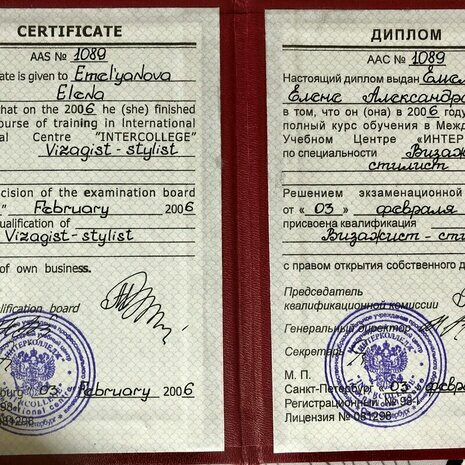 CERTIFICATE
AAS № 1089
ate is given to Emel'yanova
Elena
hat on the 2006 he (she) finished
ourse of training in International
al Centre "INTERCOLLEGE"
Vizagist-stylist
cision of the examination board
" February 2006
ualification of
Vizagist-stylist
of own business.
alification board
03 February 2006
ДИПЛОМ
ААС № 1089
Настоящий диплом выдан Емел
Елене Александр
в том, что он (она) в 2006 году
полный курс обучения в Меж
Учебном Центре «ИНТЕР
по специальности Визаж
стилист
Решением экзаменационной
от « 03 » февраля
присвоена квалификация
Визажист-сти
с правом открытия собственного д
Председатель
квалификационной комиссии
Генеральный директор
Секретарь
ИНТЕРКОЛЛЕДЖ
М. П.
Санкт-Петербург « 03 » февра
Регистрационный № 98-
Лицензия № 081298